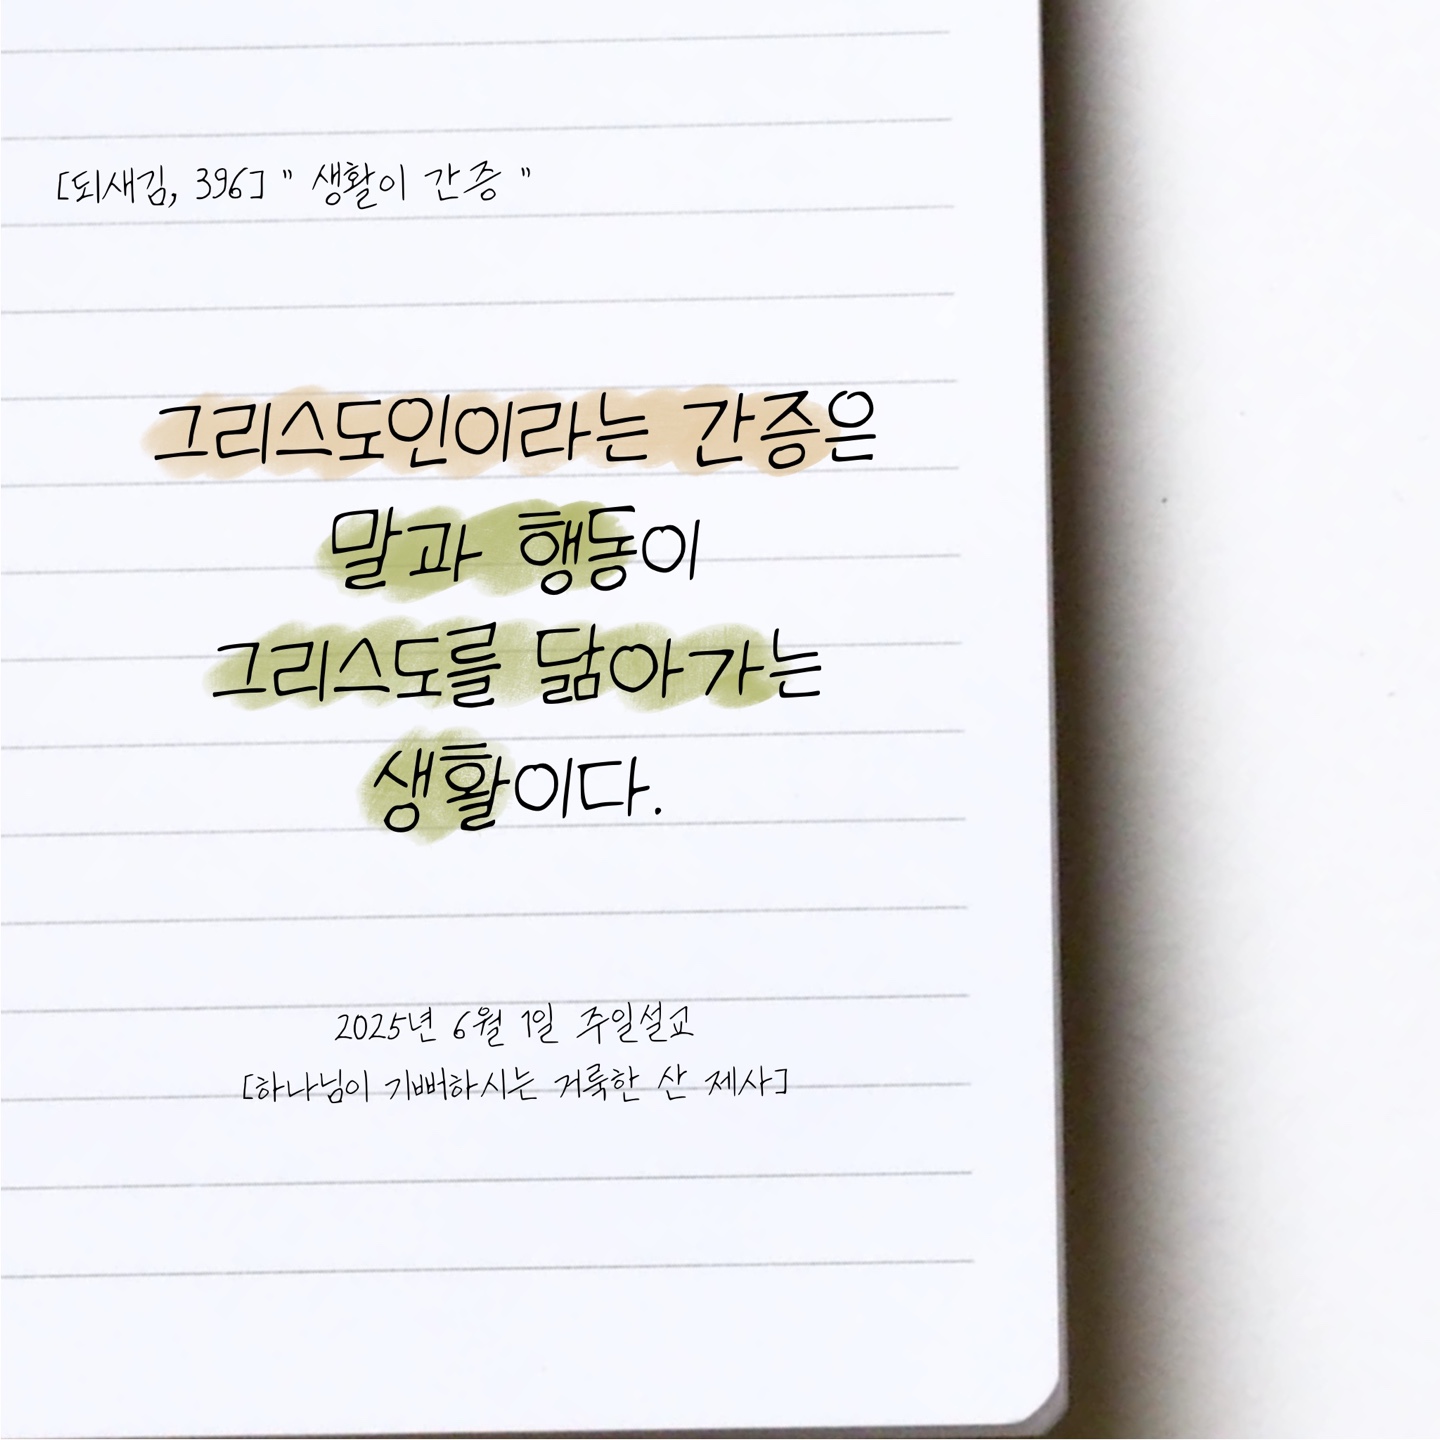 [되새김, 396] " 생활이 간증 "
그리스도인이라는 간증은
말과 행동이
그리스도를 닮아가는
생활이다.
2025년 6월 1일 주일설교
[하나님이 기뻐하시는 거룩한 산 제사]